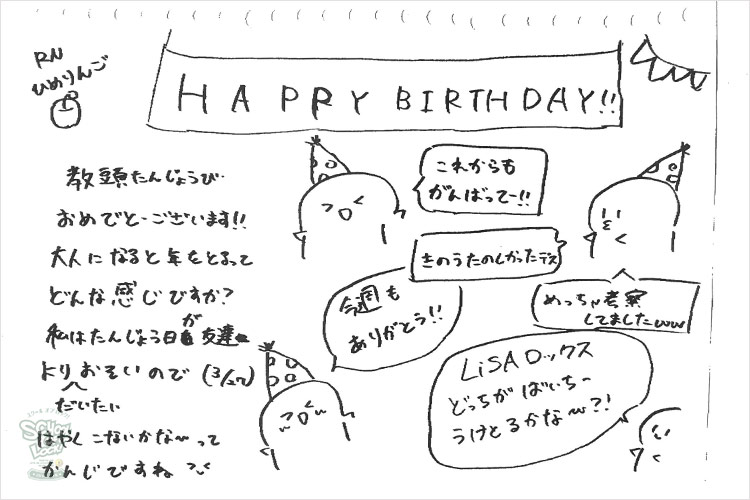 RN
ひめりんご
HAPPY BIRTHDAY!!
教頭たんじょうび
おめでとーございます!!
大人になると年をとるって
どんな感じですか?
私はたんじょう日が友達
よりおそいので(3/27)
だいたい
はやくこないかな〜って
かんじですね
これからも
がんばってー!!
きのうたのしかったデス
めっちゃ考察
してましたwww
今週も
ありがとう!!
LiSAロックス
どっちがばいちー
うけとるかな〜?!
SCHOOL
LOCK!